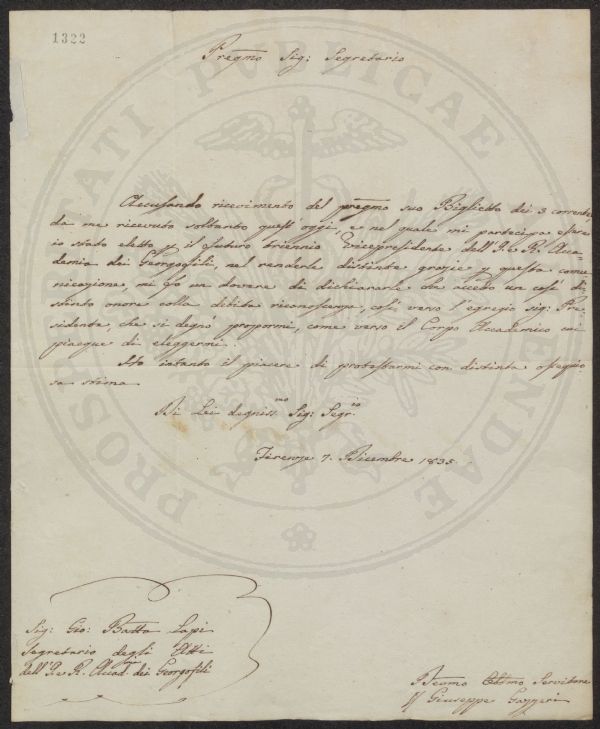 1322
Pregmo Sig: Segretario
Accusando ricevimento del pregmo suo Biglietto dei 3 corrente
da me ricevuto soltanto quest'oggi, e nel quale mi partecipa essere
io stato eletto p il futuro triennio Vicepresidente dell'I. e R. Acca
demia dei Georgofili, nel renderle distinte grazie p questa comu
nicazione, mi fo un dovere di dichiararle che accetto un così di=
stinto onore colla debita riconoscenza, così verso l'egregio sig: Pre=
sidente, che si degnò propormi, come verso il Corpo Accademico cui
piacque di eleggermi.
Ho intanto il piacere di protestarmi con distinta ossequio
sa stima
Di Lei degniss.mo Sig: Segr.io
Firenze 7. Dicembre 1835.
Sig: Gio: Batta Lapi
Segretario degli Atti
dell'I. e R. Accad. dei Georgofili
Devmo Obbmo Servitore
Giuseppe Gazzeri
PROSPERITATI PVBLICAE AVGENDAE